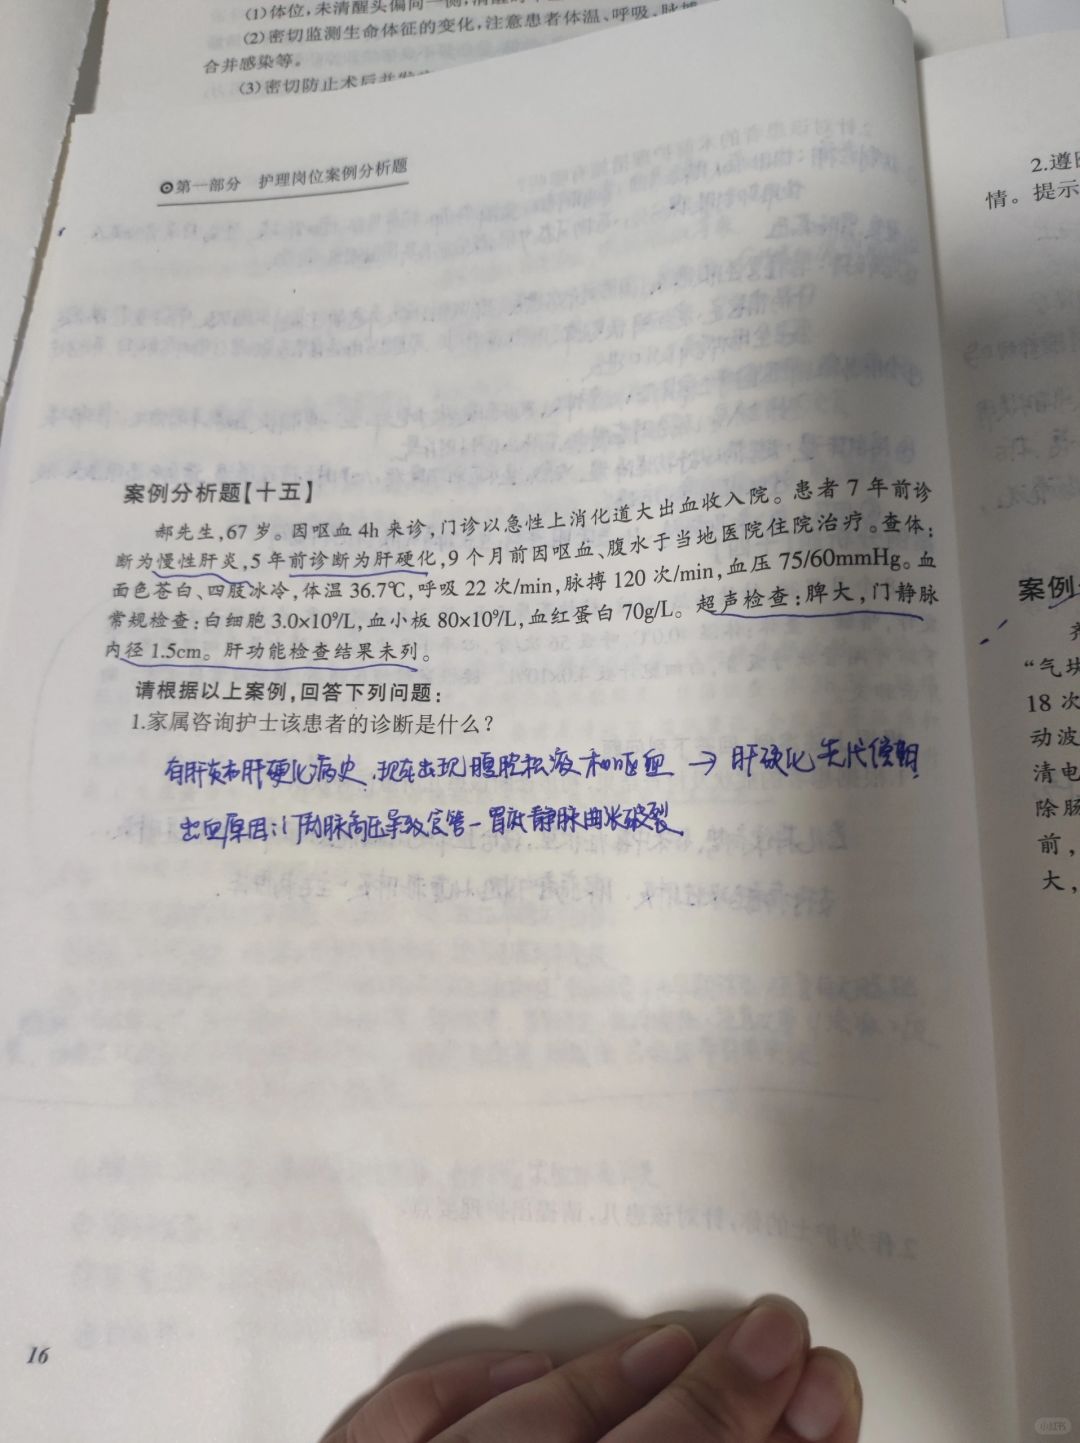 (1)体位,未清醒头偏向一侧,清醒
(2)密切监测生命体征的变化,注意患者体温、呼吸、脉搏
合并感染等。
(3)密切防止术后并发
第一部分 护理岗位案例分析题
案例分析题【十五】
郝先生,67岁。因呕血4h来诊,门诊以急性上消化道大出血收入院。患者7年前诊
断为慢性肝炎,5年前诊断为肝硬化,9个月前因呕血、腹水于当地医院住院治疗。查体:
面色苍白、四肢冰冷,体温36.7℃,呼吸22次/min,脉搏120次/min,血压75/60mmHg。血
常规检查:白细胞3.0×10⁹/L,血小板80×10⁹/L,血红蛋白70g/L。超声检查:脾大,门静脉
内径1.5cm。肝功能检查结果未列。
请根据以上案例,回答下列问题:
1.家属咨询护士该患者的诊断是什么?
有肝炎和肝硬化病史,现在出现腹腔积液和呕血→肝硬化失代偿期
出血原因:门静脉高压导致食管-胃底静脉曲张破裂
16
2.遵医
情。提示
案例
“气块
18次
动波
清电
除肠
前,
大,
小红书